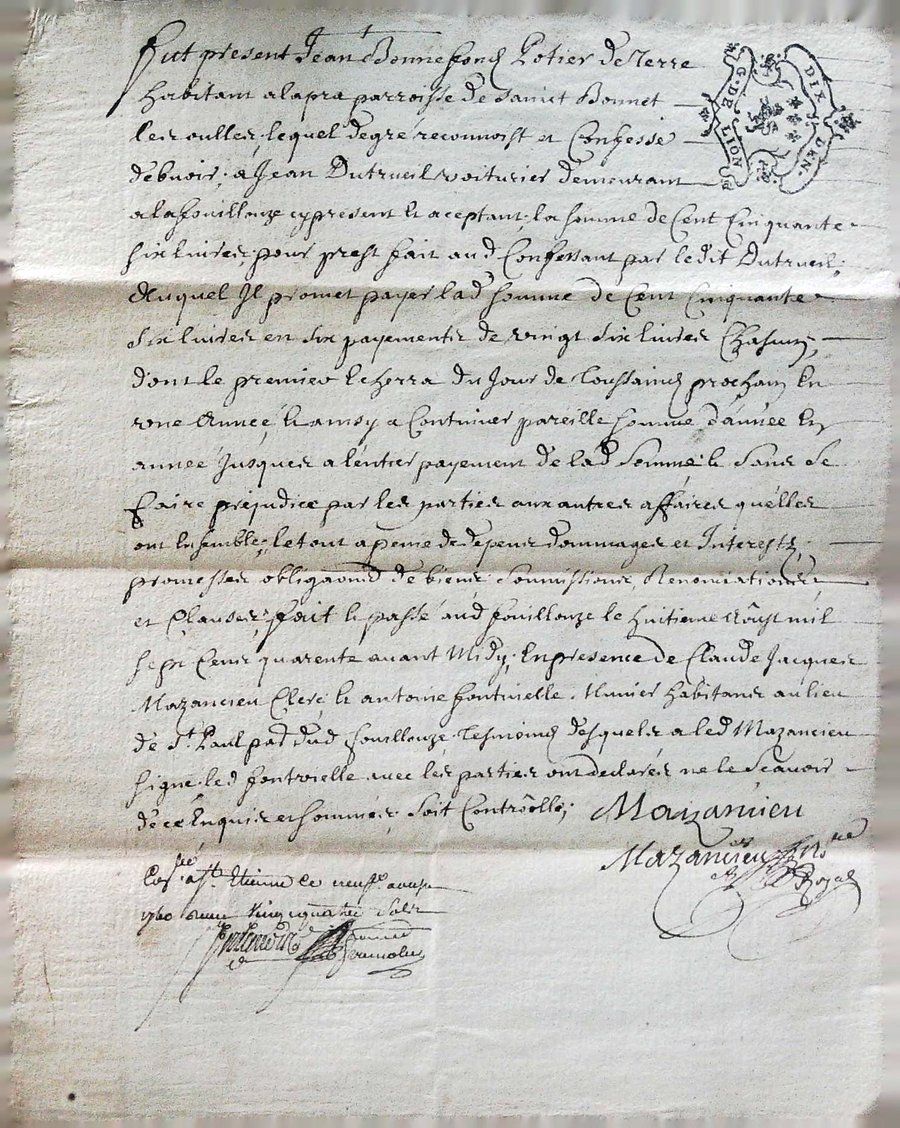 Fut present Jean Bonnefond Potier de Terre
habitant a lapra parroisse de sainct Bonnet
les oulles, lequel degré reconnoist et Confesse
debvoir, a Jean Dutrueil voiturier demeurant
a lafouillouze cy present et aceptant, la somme de Cent Cinquante
six livres pour prest fait aud Confessant par ledit Dutrueil,
Auquel Il promet payer lad somme de Cent Cinquante
six livres en six payements de vingt six livres Chascun,
dont le premier Eicherra du Jour de Toussainct prochain En
une Année, Et ainsy a Continuer pareille somme d'année En
année Jusques a l'entier payement de lad somme, Et sans se
faire préjudice par les parties aux autres affaires quelles
ont Ensemble, le tout a peine de depens dommages et Interests,
promesses obliga͠ons de biens, soumissions, Renonciations
et Clauses, fait Et passé aud fouillouze le huitieme Aoust mil
sept Cens quarente avant Midy, En presence de Claude Jacques
Mazancieu Clerc, Et antoine fontvielle Munier habitans au lieu
de St. Paul dud fouillouze Tesmoins desquels a led Mazancieu
signé, led fontvielle avec les parties ont declarés ne le Scavoir
de ce Enquis et sommés, soit Controllé, Mazancieu
Mazancieu Nore
Royal
a St. Etienne le neuf aoust
1740
G. DE LION
DIX DEN.